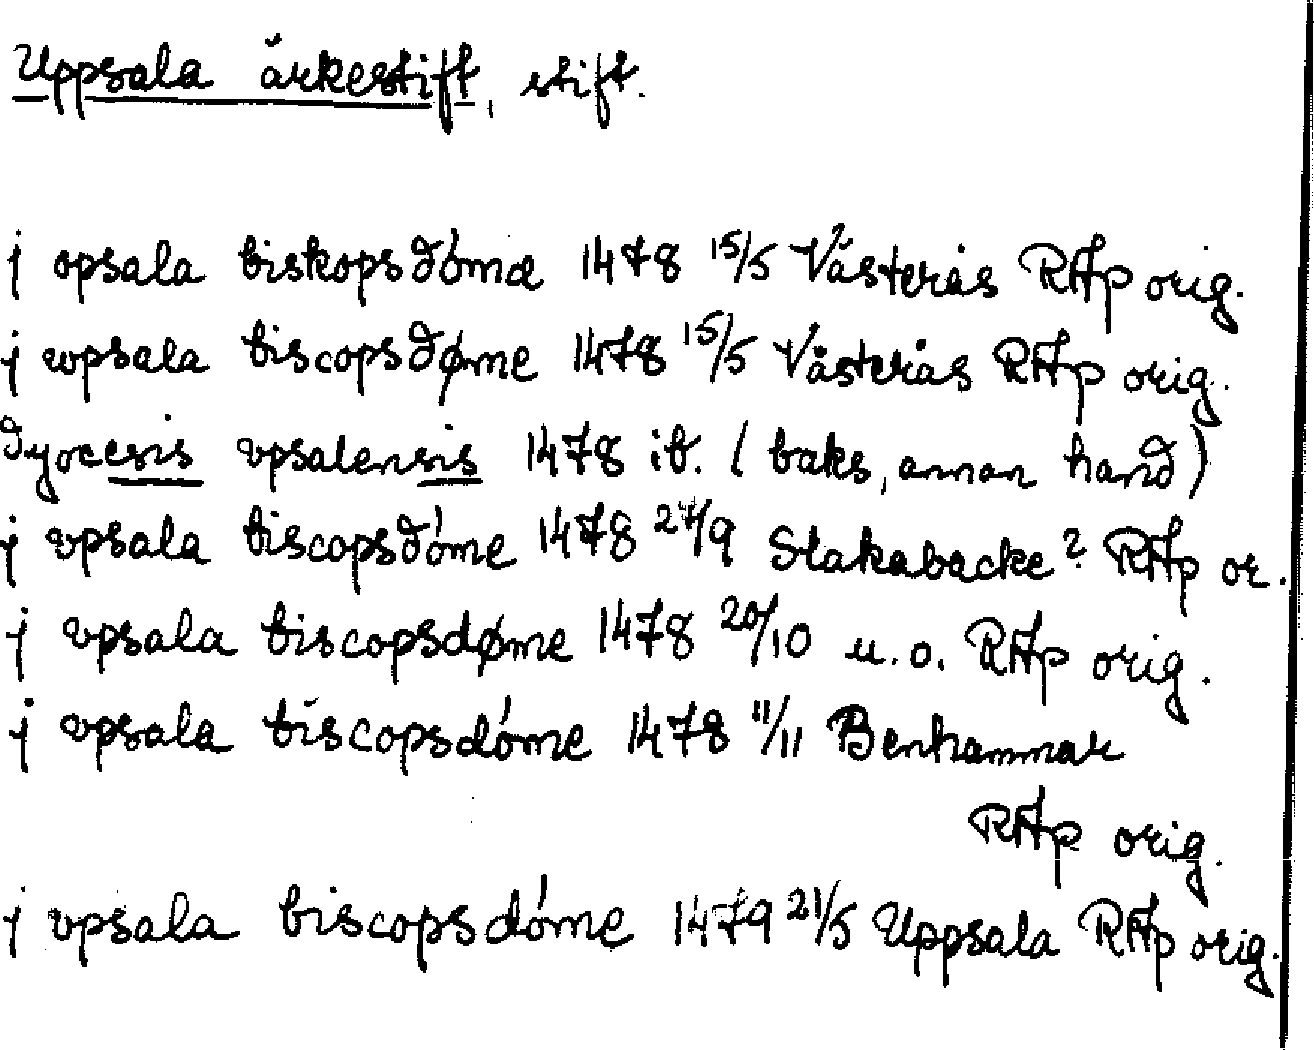 Uppsala ärkestift, stift.
j opsala biskopsdóma 1478 15/5 Västerås RAp orig.
j wpsala biscopsdøme 1478 15/5 Västerås RAp orig.
dyocesis vpsalensis 1478 ib. (baks, annan hand)
j vpsala biscopsdóme 1478 27/9 Stakabacke? RAp or.
j vpsala biscopsdøme 1478 20/10 u.o. RAp orig.
j vpsala biscopsdóme 1478 11/11 Benhammar
RAp orig.
j vpsala biscopsdóme 1479 21/5 Uppsala RAp orig.